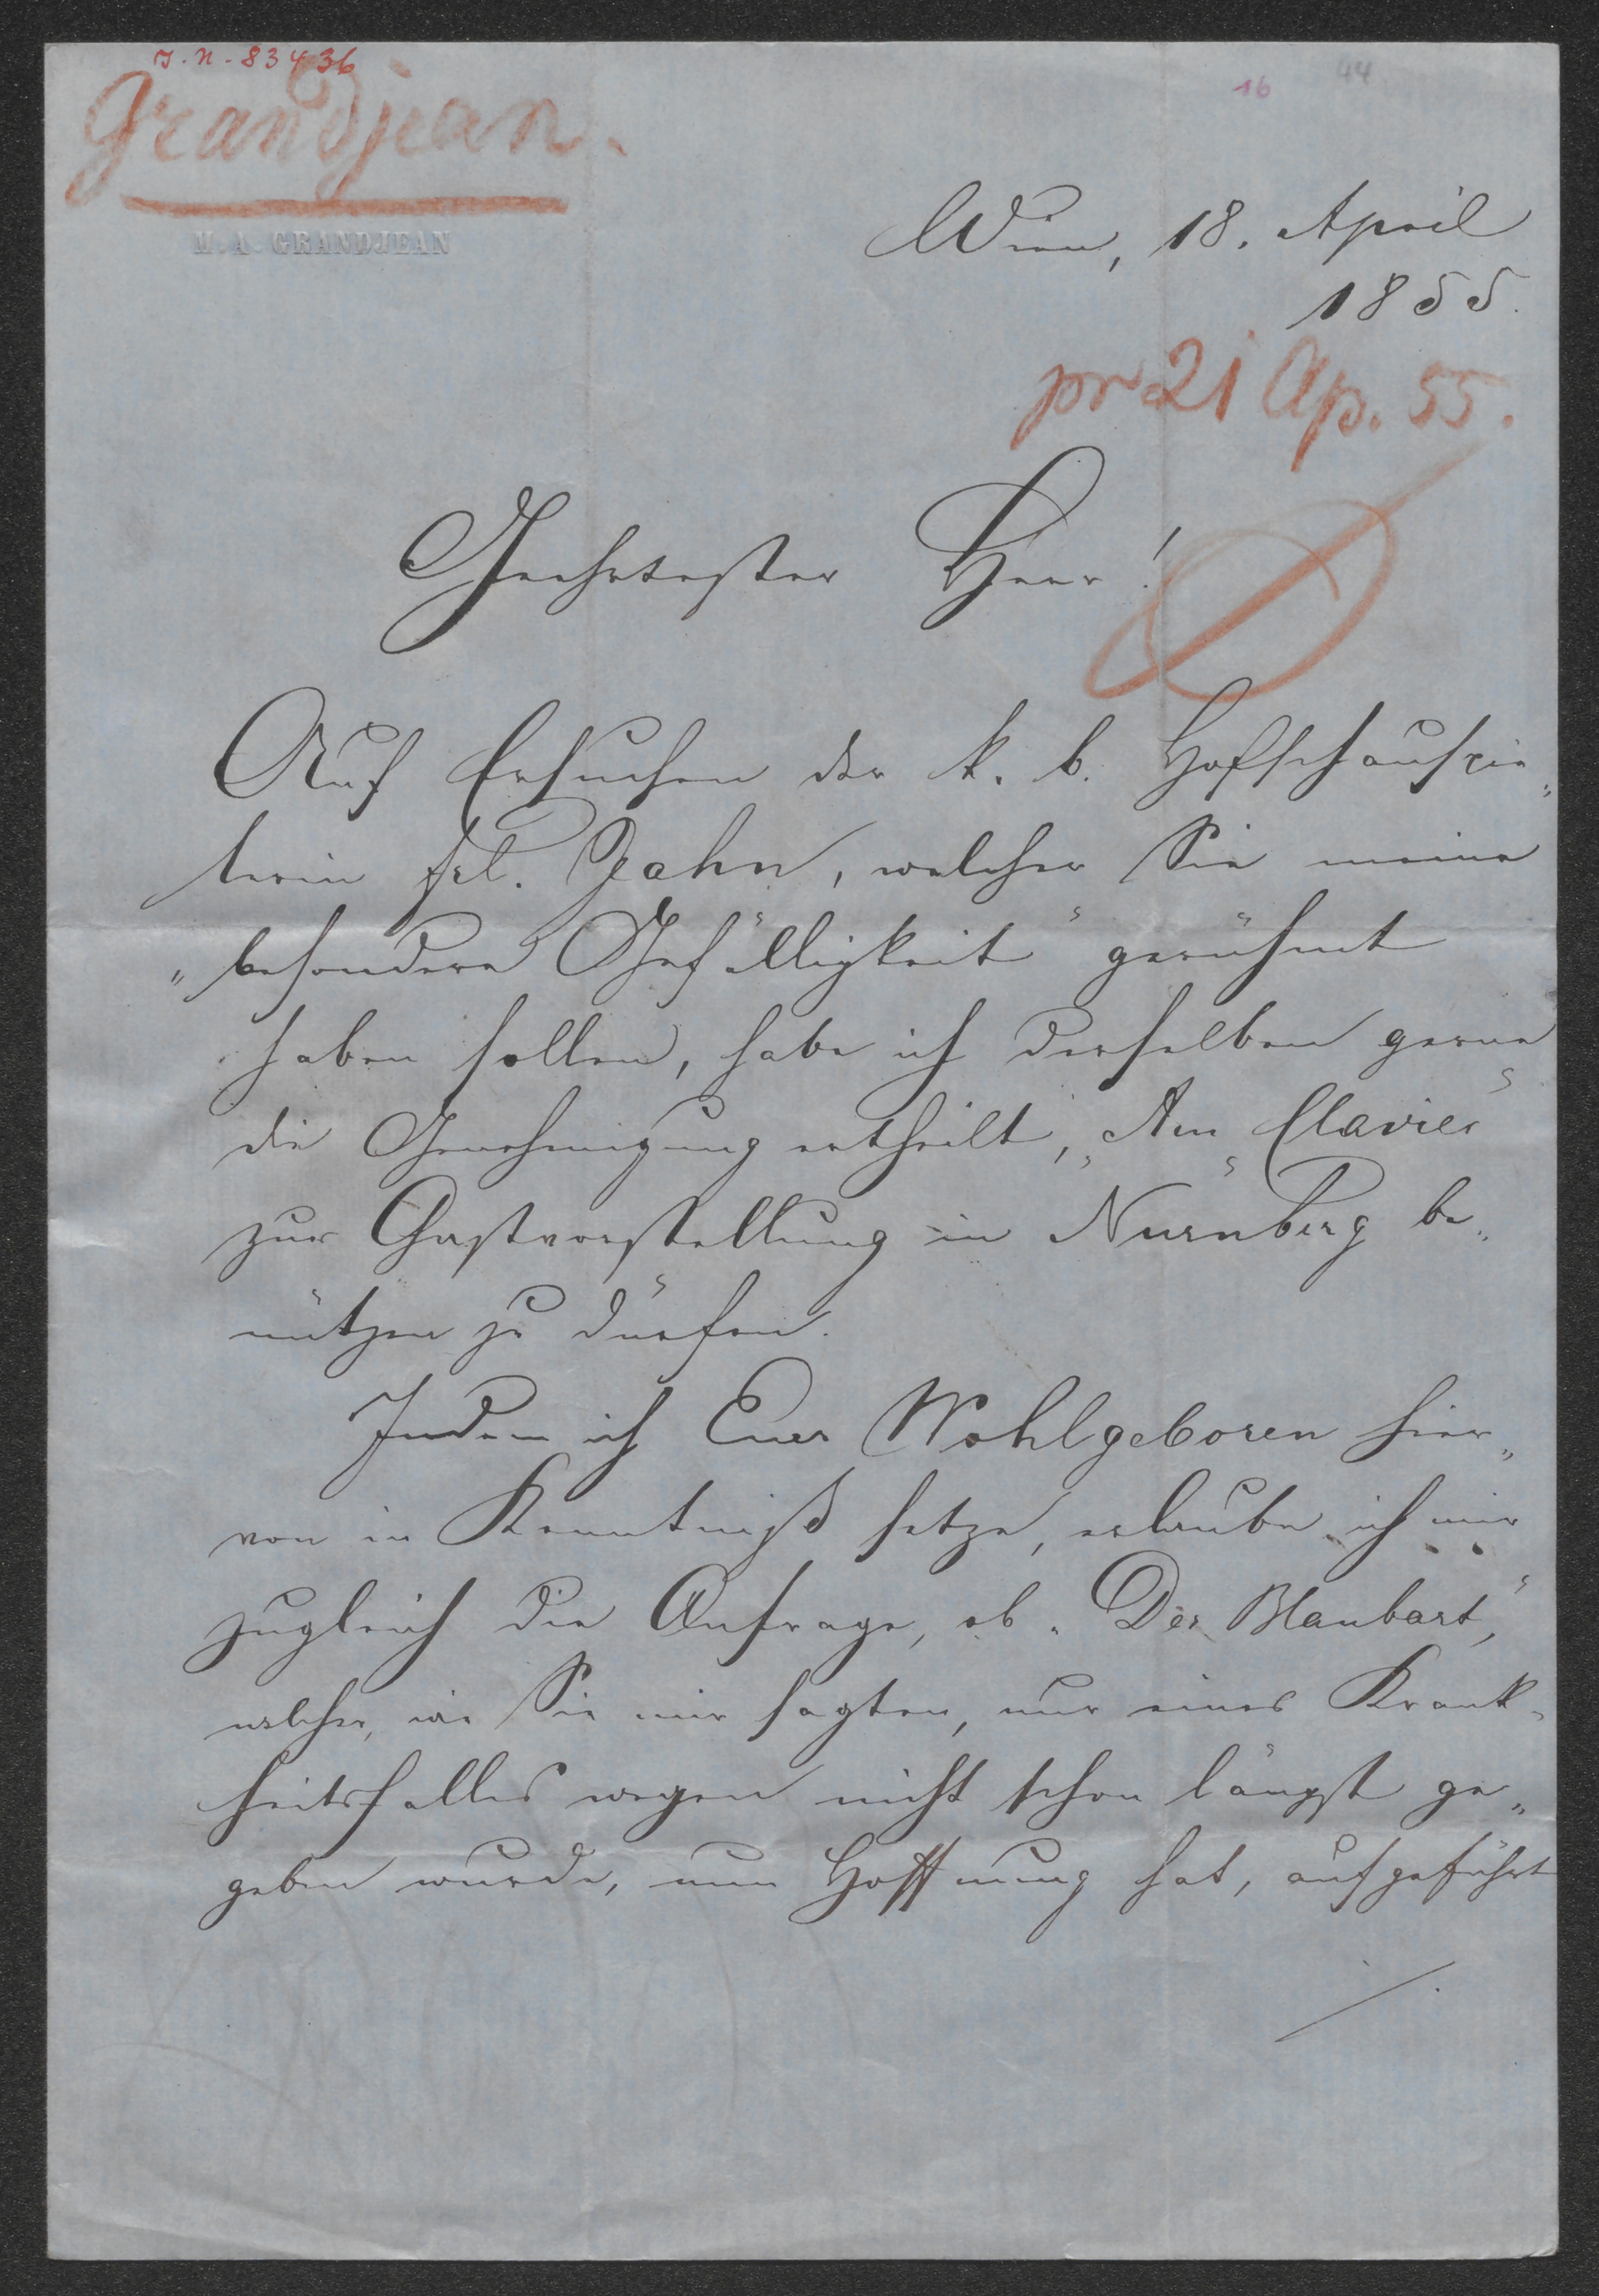 I.N.-83436
16 44
Grandjean.
M. A. GRANDJEAN
Wien, 18. April
1855.
pr 21 Ap. 55.
Geehrtester Herr!
Auf Ersuchen der k. b. Hofschauspie„
lerin Frl. Jahn, welcher Sie meine
„besondere Gefälligkeit“ gerühmt
haben sollen, habe ich derselben gerne
die Genehmigung ertheilt, „Am Clavier“
zur Gastvorstellung in Nürnberg be„
nützen zu dürfen.
Indem ich Euer Wohlgeboren hier„
von in Kenntniß setze, erlaube ich mir
zugleich die Anfrage, ob „Der Blaubart“,
welcher, wie Sie mir sagten, nur eines Krank„
heitsfalles wegen nicht schon längst ge„
geben wurde, nun Hoffnung hat, aufgeführt
./.